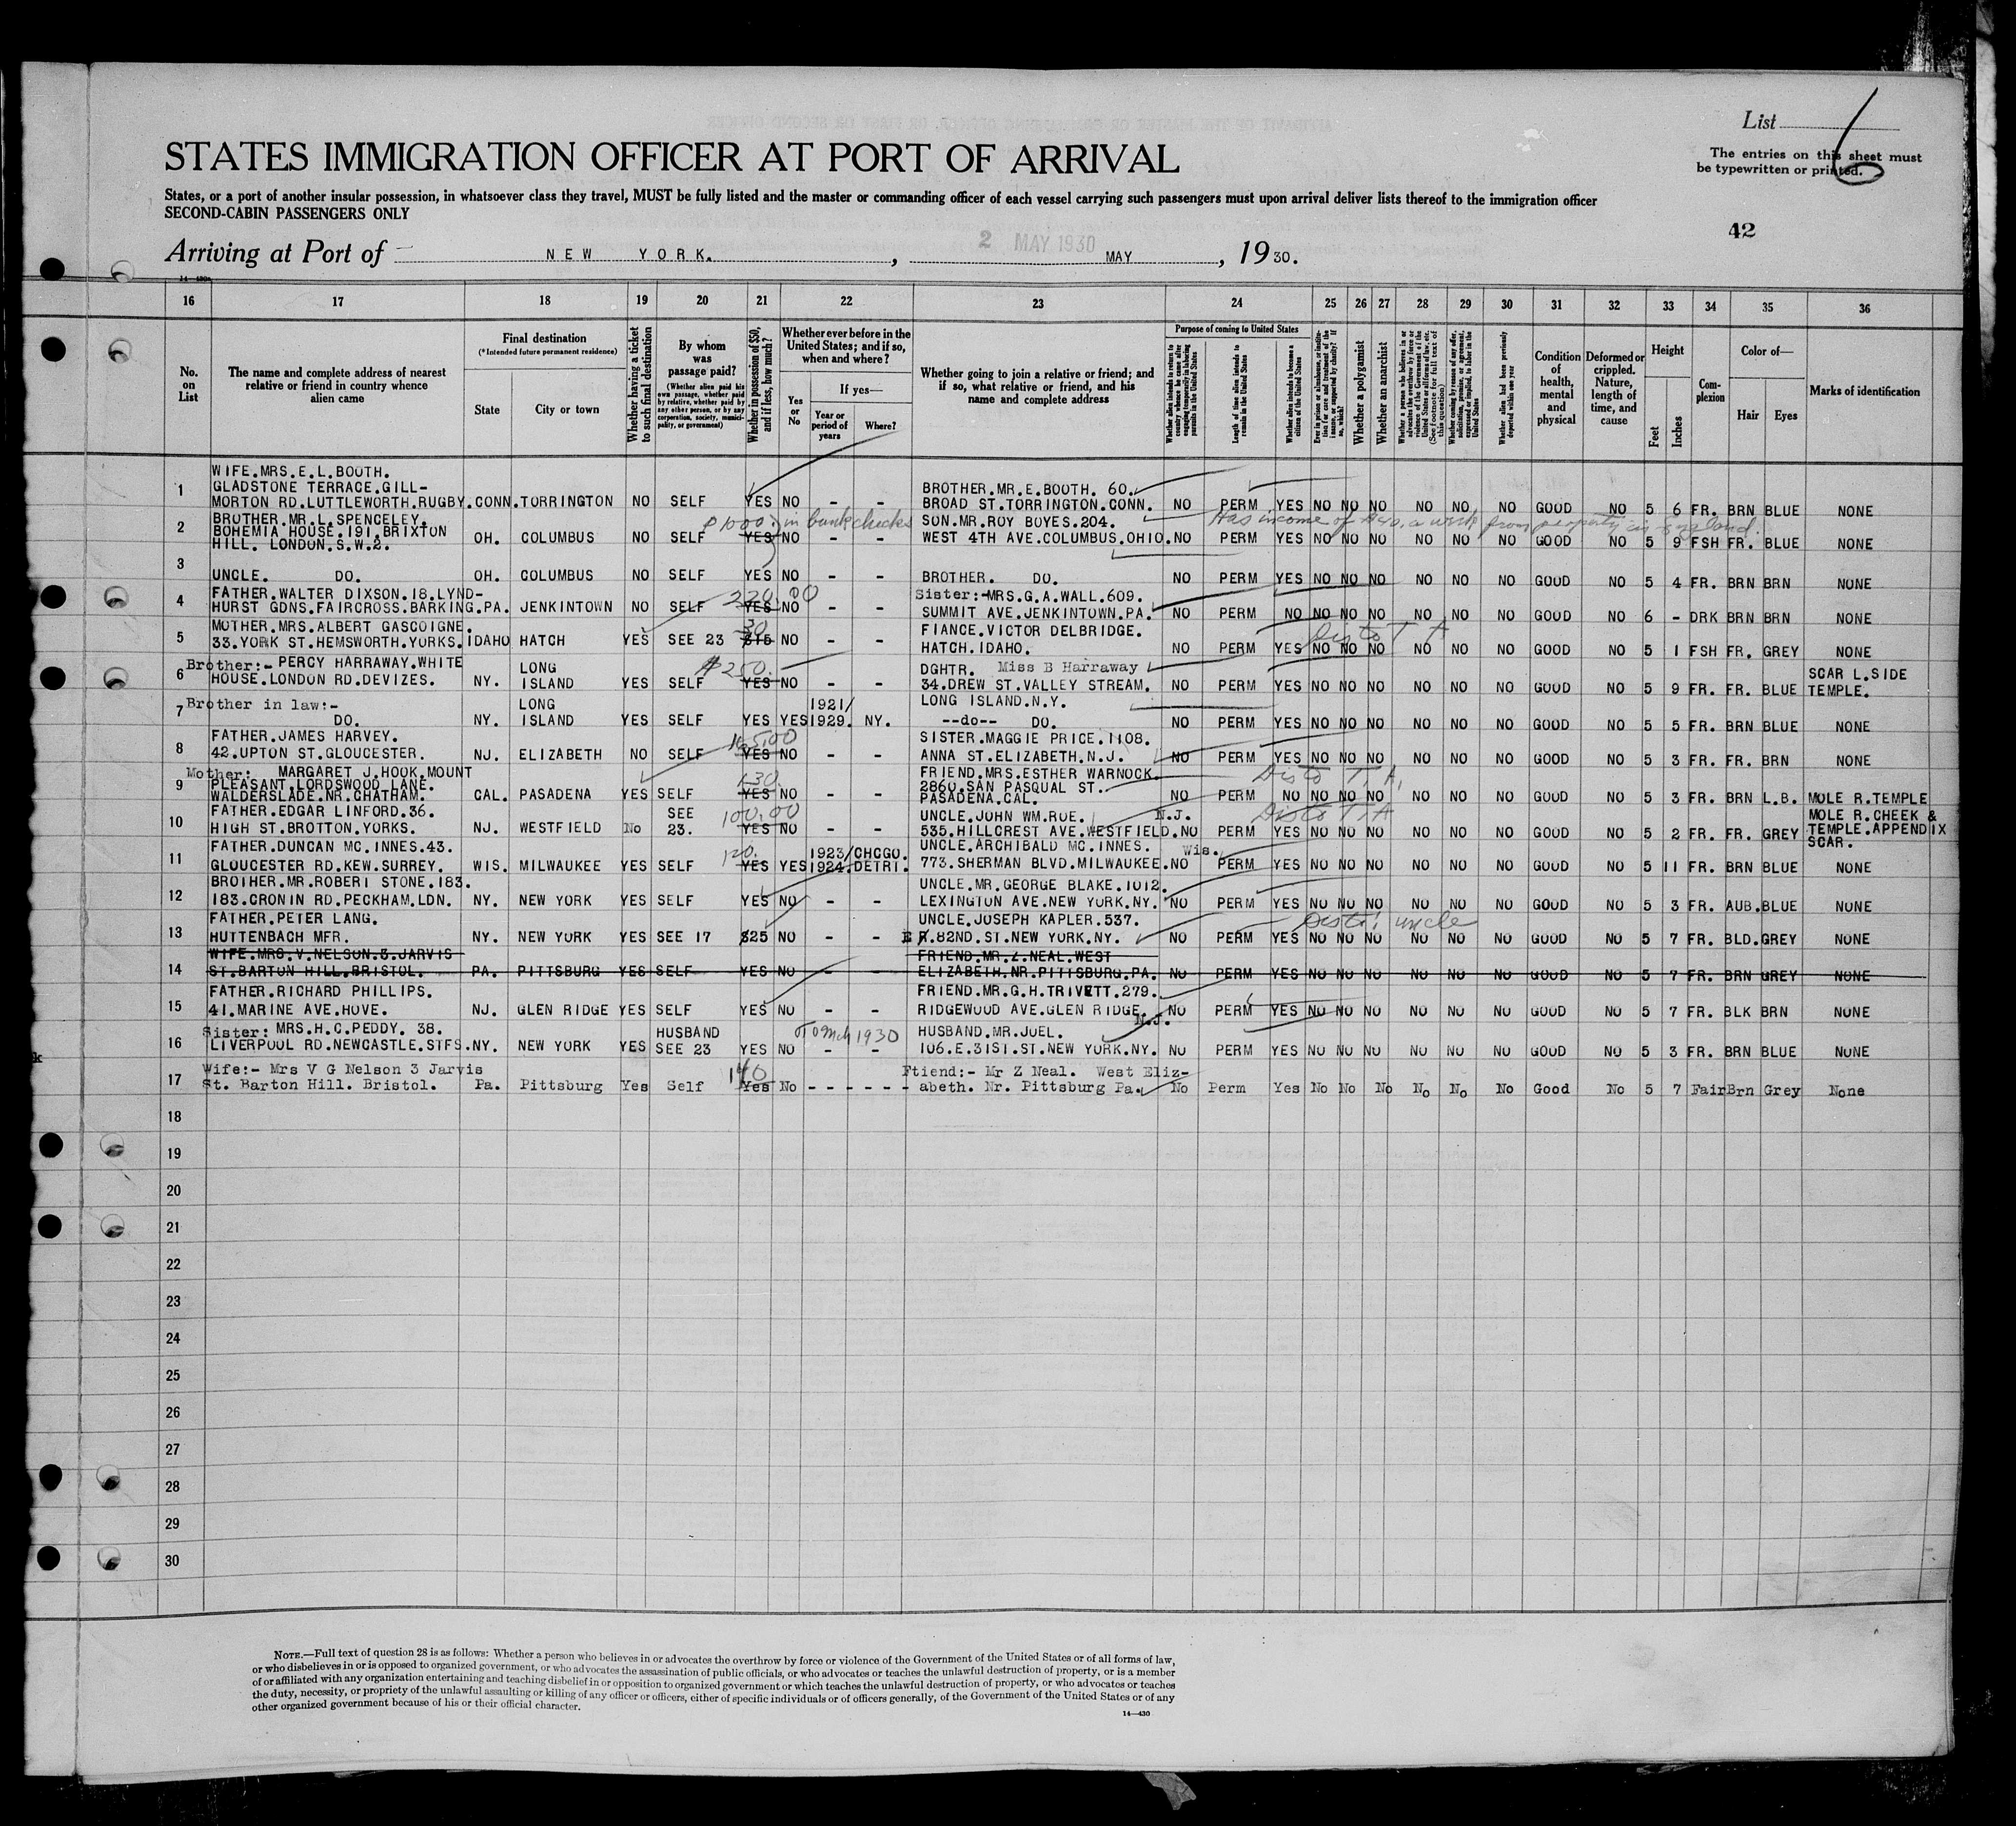 List
The entries on this sheet must
be typewritten or printed.
STATES IMMIGRATION OFFICER AT PORT OF ARRIVAL
States, or a port of another insular possession, in whatsoever class they travel, MUST be fully listed and the master or commanding officer of each vessel carrying such passengers must upon arrival deliver lists thereof to the immigration officer
SECOND-CABIN PASSENGERS ONLY
42
2 MAY 1930
Arriving at Port of NEW YORK. , MAY , 1930.
14-430
16 17 18 19 20 21 22 23 24 25 26 27 28 29 30 31 32 33 34 35 36
No. on List
The name and complete address of nearest relative or friend in country whence alien came
Final destination
(*Intended future permanent residence)
State
City or town
Whether having a ticket to such final destination
By whom was passage paid?
(Whether alien paid his own passage, whether paid by relative, whether paid by any other person, or by any corporation, society, municipality, or government)
Whether in possession of $50, and if less, how much?
Whether ever before in the United States; and if so, when and where?
Yes or No
If yes—
Year or period of years
Where?
Whether going to join a relative or friend; and if so, what relative or friend, and his name and complete address
Purpose of coming to United States
Whether alien intends to return to country whence he came after engaging temporarily in laboring pursuits in the United States
Length of time alien intends to remain in the United States
Whether alien intends to become a citizen of the United States
Ever in prison or almshouse, or institution for care and treatment of the insane, or supported by charity? If so, which?
Whether a polygamist
Whether an anarchist
Whether a person who believes in or advocates the overthrow by force or violence of the Government of the United States or all forms of law, etc. (See footnote for full text of this question)
Whether coming by reason of any offer, solicitation, promise, or agreement, expressed or implied, to labor in the United States
Whether alien had been previously deported within one year
Condition of health, mental and physical
Deformed or crippled. Nature, length of time, and cause
Height
Feet
Inches
Complexion
Color of—
Hair
Eyes
Marks of identification
WIFE.MRS.E.L.BOOTH.
GLADSTONE TERRACE.GILL- BROTHER.MR.E.BOOTH. 60.
1 MORTON RD.LUTTLEWORTH.RUGBY. CONN. TORRINGTON NO SELF YES NO - - BROAD ST.TORRINGTON.CONN. NO PERM YES NO NO NO NO NO NO GOOD NO 5 6 FR. BRN BLUE NONE
BROTHER.MR.L.SPENCELEY. $1000. in bank checks SON.MR.ROY BOYES.204. Has income of a week from property in England
2 BOHEMIA HOUSE.191.BRIXTON
HILL. LONDON.S.W.2. OH. COLUMBUS NO SELF YES NO - - WEST 4TH AVE.COLUMBUS.OHIO. NO PERM YES NO NO NO NO NO NO GOOD NO 5 9 FSH FR. BLUE NONE
3 UNCLE. DO. OH. COLUMBUS NO SELF YES NO - - BROTHER. DO. NO PERM YES NO NO NO NO NO NO GOOD NO 5 4 FR. BRN BRN NONE
FATHER.WALTER DIXSON.18.LYND- 220.00 Sister:-MRS.G.A.WALL.609.
4 HURST GDNS.FAIRCROSS.BARKING. PA. JENKINTOWN NO SELF YES NO - - SUMMIT AVE.JENKINTOWN.PA. NO PERM NO NO NO NO NO NO NO GOOD NO 6 - DRK BRN BRN NONE
MOTHER.MRS.ALBERT GASCOIGNE. 30 FIANCE.VICTOR DELBRIDGE. Dis to T A
5 33.YORK ST.HEMSWORTH.YORKS. IDAHO HATCH YES SEE 23 $15 NO - - HATCH.IDAHO. NO PERM YES NO NO NO NO NO NO GOOD NO 5 1 FSH FR. GREY NONE
Brother:- PERCY HARRAWAY.WHITE LONG $250. DGHTR. Miss B Harraway SCAR L.SIDE
6 HOUSE.LONDON RD.DEVIZES. NY. ISLAND YES SELF YES NO - - 34.DREW ST.VALLEY STREAM. NO PERM YES NO NO NO NO NO NO GOOD NO 5 9 FR. FR. BLUE TEMPLE.
Brother in law:- LONG 1921/ LONG ISLAND.N.Y.
7 DO. NY. ISLAND YES SELF YES YES 1929. NY. --do-- DO. NO PERM YES NO NO NO NO NO NO GOOD NO 5 5 FR. BRN BLUE NONE
FATHER.JAMES HARVEY. SISTER.MAGGIE PRICE.1108.
8 42.UPTON ST.GLOUCESTER. NJ. ELIZABETH NO SELF YES NO - - ANNA ST.ELIZABETH.N.J. NO PERM YES NO NO NO NO NO NO GOOD NO 5 3 FR. FR. BRN NONE
Mother: MARGARET J.HOOK.MOUNT FRIEND.MRS.ESTHER WARNOCK. Dis to T.A.
9 PLEASANT.LORDSWOOD LANE. 130. 2860.SAN PASQUAL ST.
WALDERSLADE.NR.CHATHAM. CAL. PASADENA YES SELF YES NO - - PASADENA.CAL. NO PERM NO NO NO NO NO NO NO GOOD NO 5 3 FR. BRN L.B. MOLE R.TEMPLE
FATHER.EDGAR LINFORD.36. SEE 100.00 UNCLE.JOHN WM.ROE. N.J. Dis to T.A MOLE R.CHEEK &
10 HIGH ST.BROTTON.YORKS. NJ. WESTFIELD No 23. YES NO - - 535.HILLCREST AVE.WESTFIELD. NO PERM YES NO NO NO NO NO NO GOOD NO 5 2 FR. FR. GREY TEMPLE.APPENDIX
SCAR.
FATHER.DUNCAN MC.INNES.43. 120. 1923/ CHCGO. UNCLE.ARCHIBALD MC.INNES. Wis.
11 GLOUCESTER RD.KEW.SURREY. WIS. MILWAUKEE YES SELF YES YES 1924. DETRI. 773.SHERMAN BLVD.MILWAUKEE. NO PERM YES NO NO NO NO NO NO GOOD NO 5 11 FR. BRN BLUE NONE
BROTHER.MR.ROBERT STONE.183. UNCLE.MR.GEORGE BLAKE.1012.
12 183.CRONIN RD.PECKHAM.LDN. NY. NEW YORK YES SELF YES NO - - LEXINGTON AVE.NEW YORK.NY. NO PERM YES NO NO NO NO NO NO GOOD NO 5 3 FR. AUB. BLUE NONE
FATHER.PETER LANG. UNCLE.JOSEPH KAPLER.537. uncle
13 HUTTENBACH MFR. NY. NEW YORK YES SEE 17 $25 NO - - E 82ND.ST.NEW YORK.NY. NO PERM YES NO NO NO NO NO NO GOOD NO 5 7 FR. BLD. GREY NONE
WIFE.MRS.V.NELSON.3.JARVIS FRIEND.MR.Z.NEAL.WEST
14 ST.BARTON HILL.BRISTOL. PA. PITTSBURG YES SELF YES NO - - ELIZABETH.NR.PITTSBURG.PA. NO PERM YES NO NO NO NO NO NO GOOD NO 5 7 FR. BRN GREY NONE
FATHER.RICHARD PHILLIPS. FRIEND.MR.G.H.TRIVETT.279.
15 41.MARINE AVE.HOVE. NJ. GLEN RIDGE YES SELF YES NO - - RIDGEWOOD AVE.GLEN RIDGE. N.J. NO PERM YES NO NO NO NO NO NO GOOD NO 5 7 FR. BLK BRN NONE
Sister: MRS.H.C.PEDDY. 38. HUSBAND 1930 HUSBAND.MR.JOEL.
16 LIVERPOOL RD.NEWCASTLE.STFS. NY. NEW YORK YES SEE 23 YES NO - - 106.E.31ST.ST.NEW YORK.NY. NO PERM YES NO NO NO NO NO NO GOOD NO 5 3 FR. BRN BLUE NONE
Wife:- Mrs V G Nelson 3 Jarvis 140 Ftiend:- Mr Z Neal. West Eliz-
17 St. Barton Hill. Bristol. Pa. Pittsburg Yes Self Yes No - - - - - - abeth. Nr. Pittsburg Pa. No Perm Yes No No No No No No Good No 5 7 Fair Brn Grey None
18
19
20
21
22
23
24
25
26
27
28
29
30
NOTE.—Full text of question 28 is as follows: Whether a person who believes in or advocates the overthrow by force or violence of the Government of the United States or of all forms of law,
or who disbelieves in or is opposed to organized government, or who advocates the assassination of public officials, or who advocates or teaches the unlawful destruction of property, or is a member
of or affiliated with any organization entertaining and teaching disbelief in or opposition to organized government or which teaches the unlawful destruction of property, or who advocates or teaches
the duty, necessity, or propriety of the unlawful assaulting or killing of any officer or officers, either of specific individuals or of officers generally, of the Government of the United States or of any
other organized government because of his or their official character.
14—430